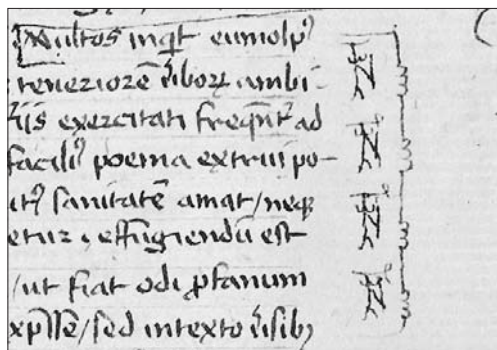 Multos inqͥt eumolpꝰ
teneriorē ũborꝝ ambi-
iis exercitati freqn̄tꝭ ad
facilꝰ poema extrui po-
itꝰ sanitatē amat/neqꝫ
etur, effugiendū est
/ut fiat odi ꝓfanum
xp̄sse/sed intexto ũsibꝫ